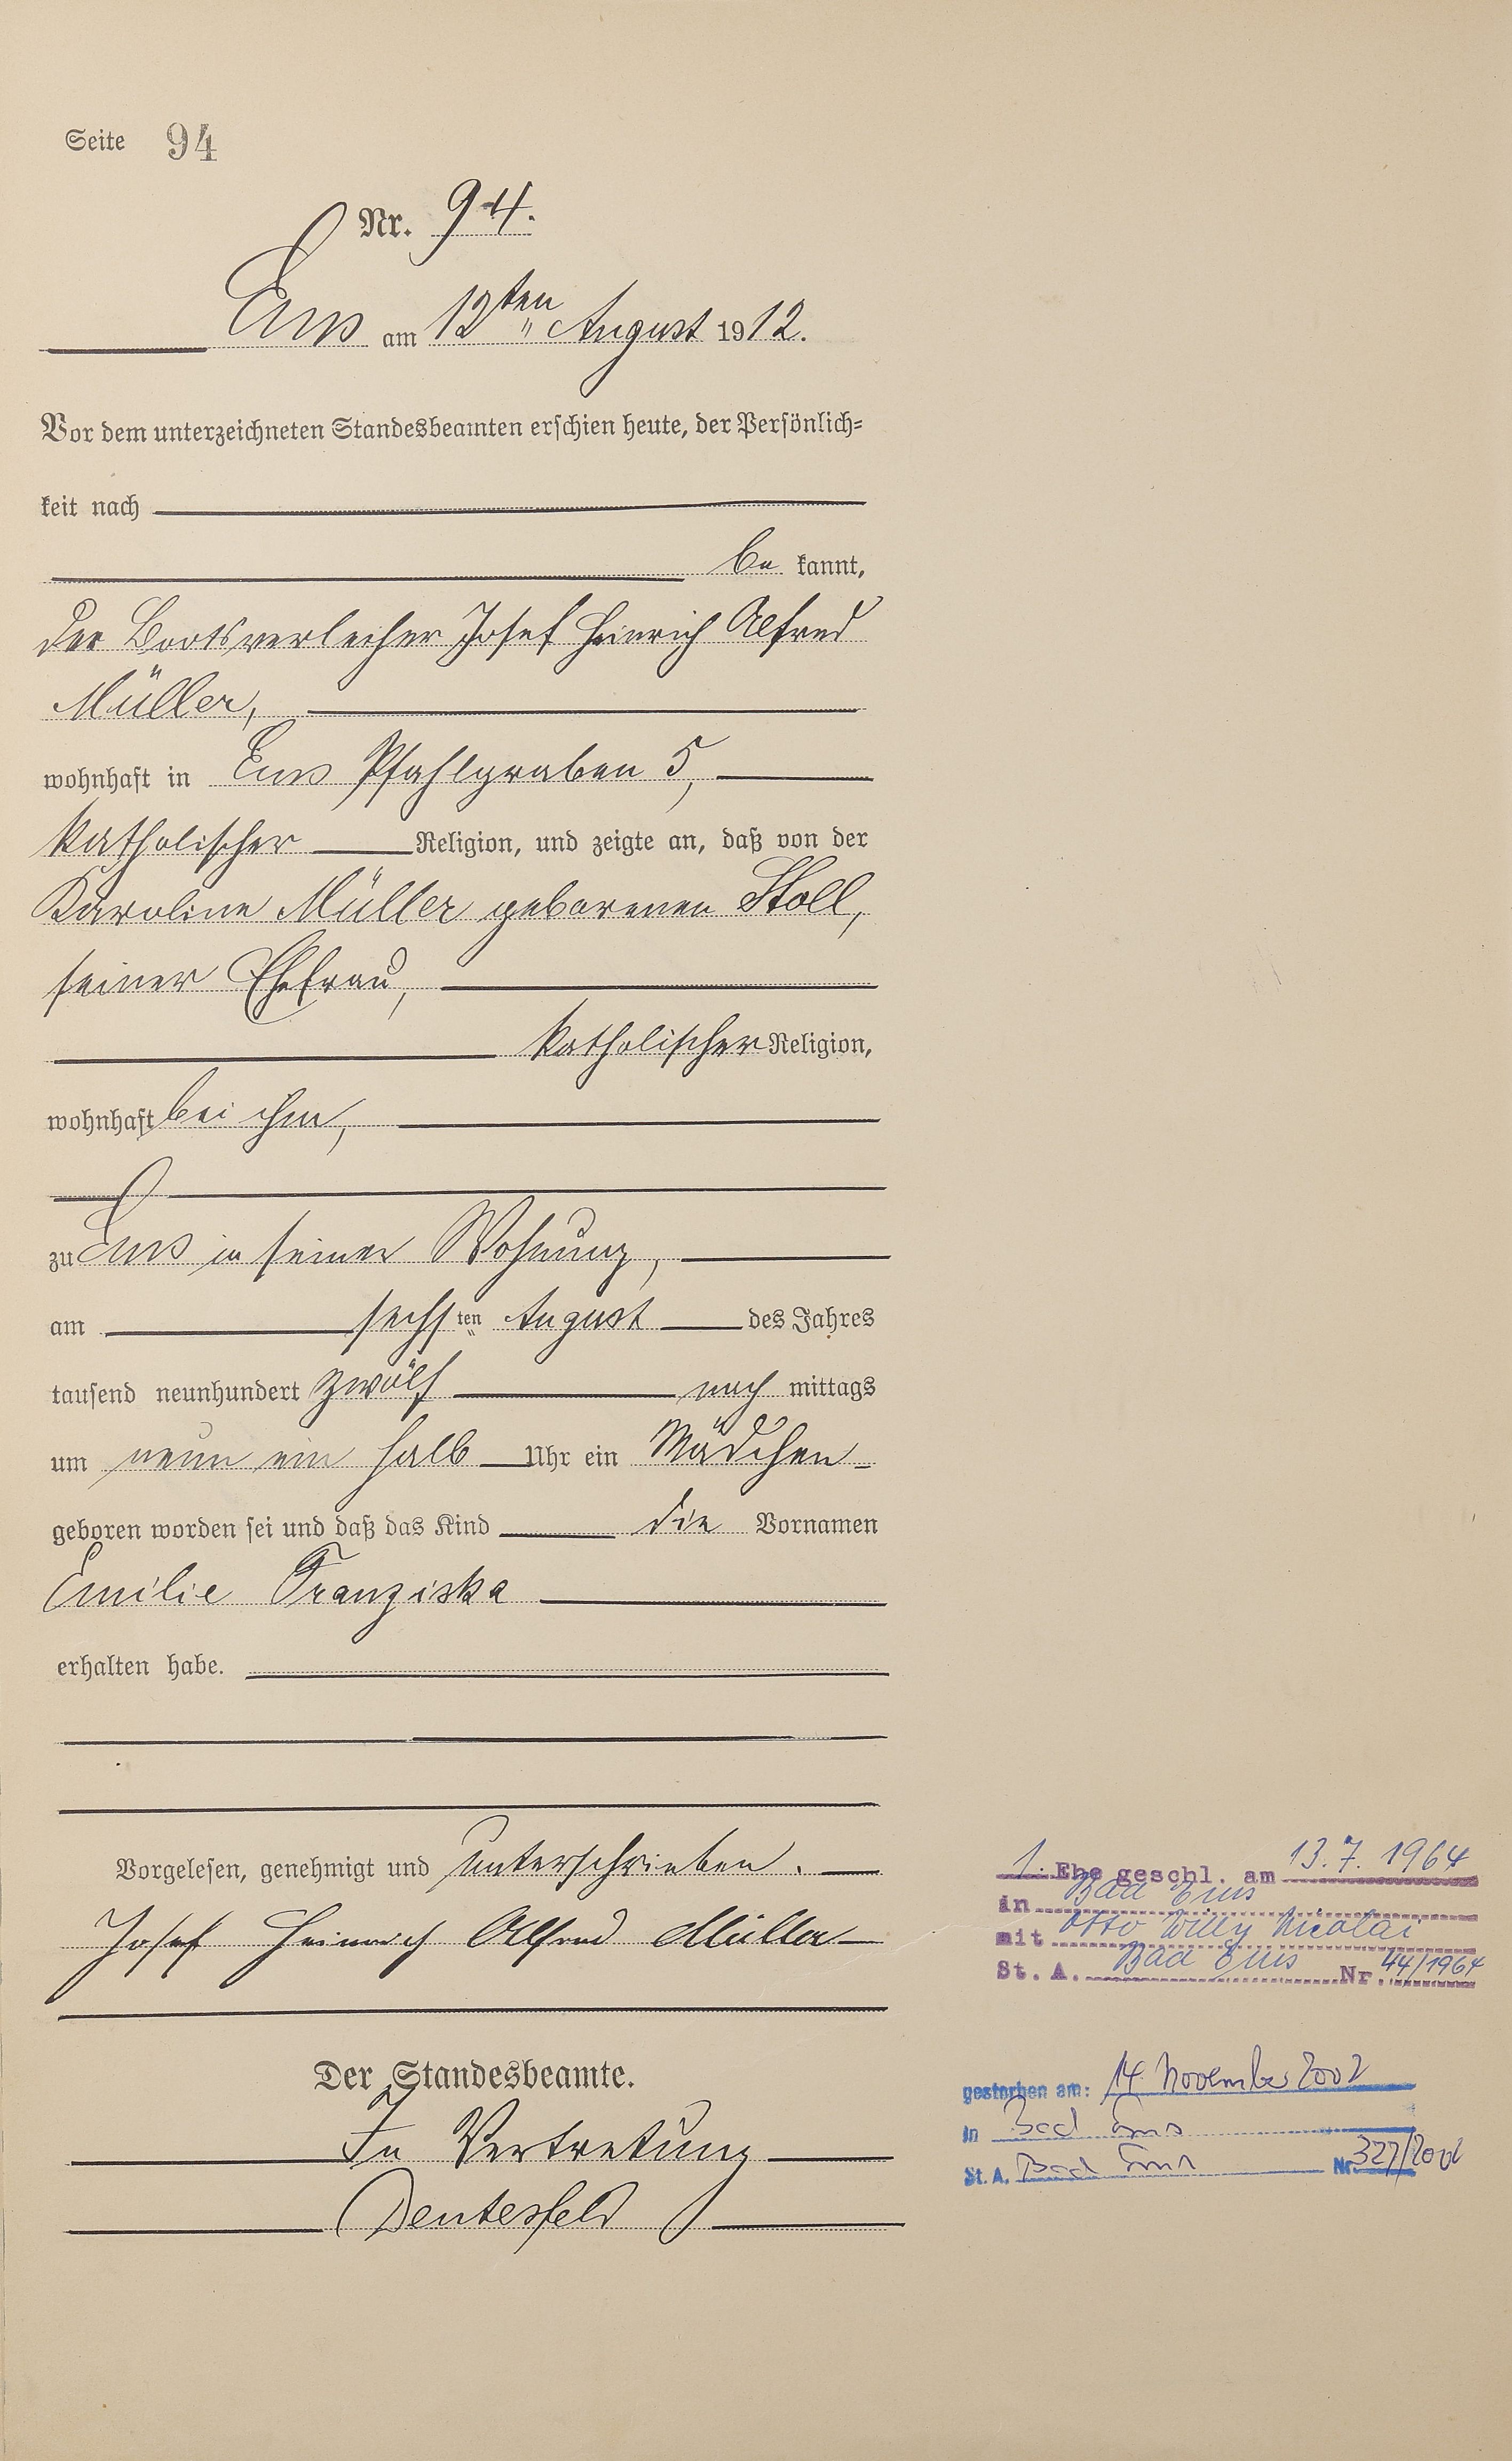 Seite 94
Nr. 94.
Ems am 12ten August 1912.
Vor dem unterzeichneten Standesbeamten erschien heute, der Persönlich-
keit nach
be kannt,
der Bootsverleiher Josef Heinrich Alfred
Müller,
wohnhaft in Ems Pfahlgraben 5,
katholischer Religion, und zeigte an, daß von der
Karoline Müller geborenen Stoll,
seiner Ehefrau,
katholischer Religion,
wohnhaft bei ihm,
zu Ems in seiner Wohnung,
am sechsten August des Jahres
tausend neunhundert zwölf nach mittags
um neun ein halb Uhr ein Mädchen
geboren worden sei und daß das Kind die Vornamen
Emilie Franziska
erhalten habe.
Vorgelesen, genehmigt und unterschrieben.
Josef Heinrich Alfred Müller
Der Standesbeamte.
In Vertretung
1. Ehe geschl. am 13.7.1964
in Bad Ems
mit Otto Willy Nicolai
St. A. Bad Ems Nr. 44/1964
gestorben am: 14. November 2002
in Bad Ems
St. A. Bad Ems Nr. 327/2002